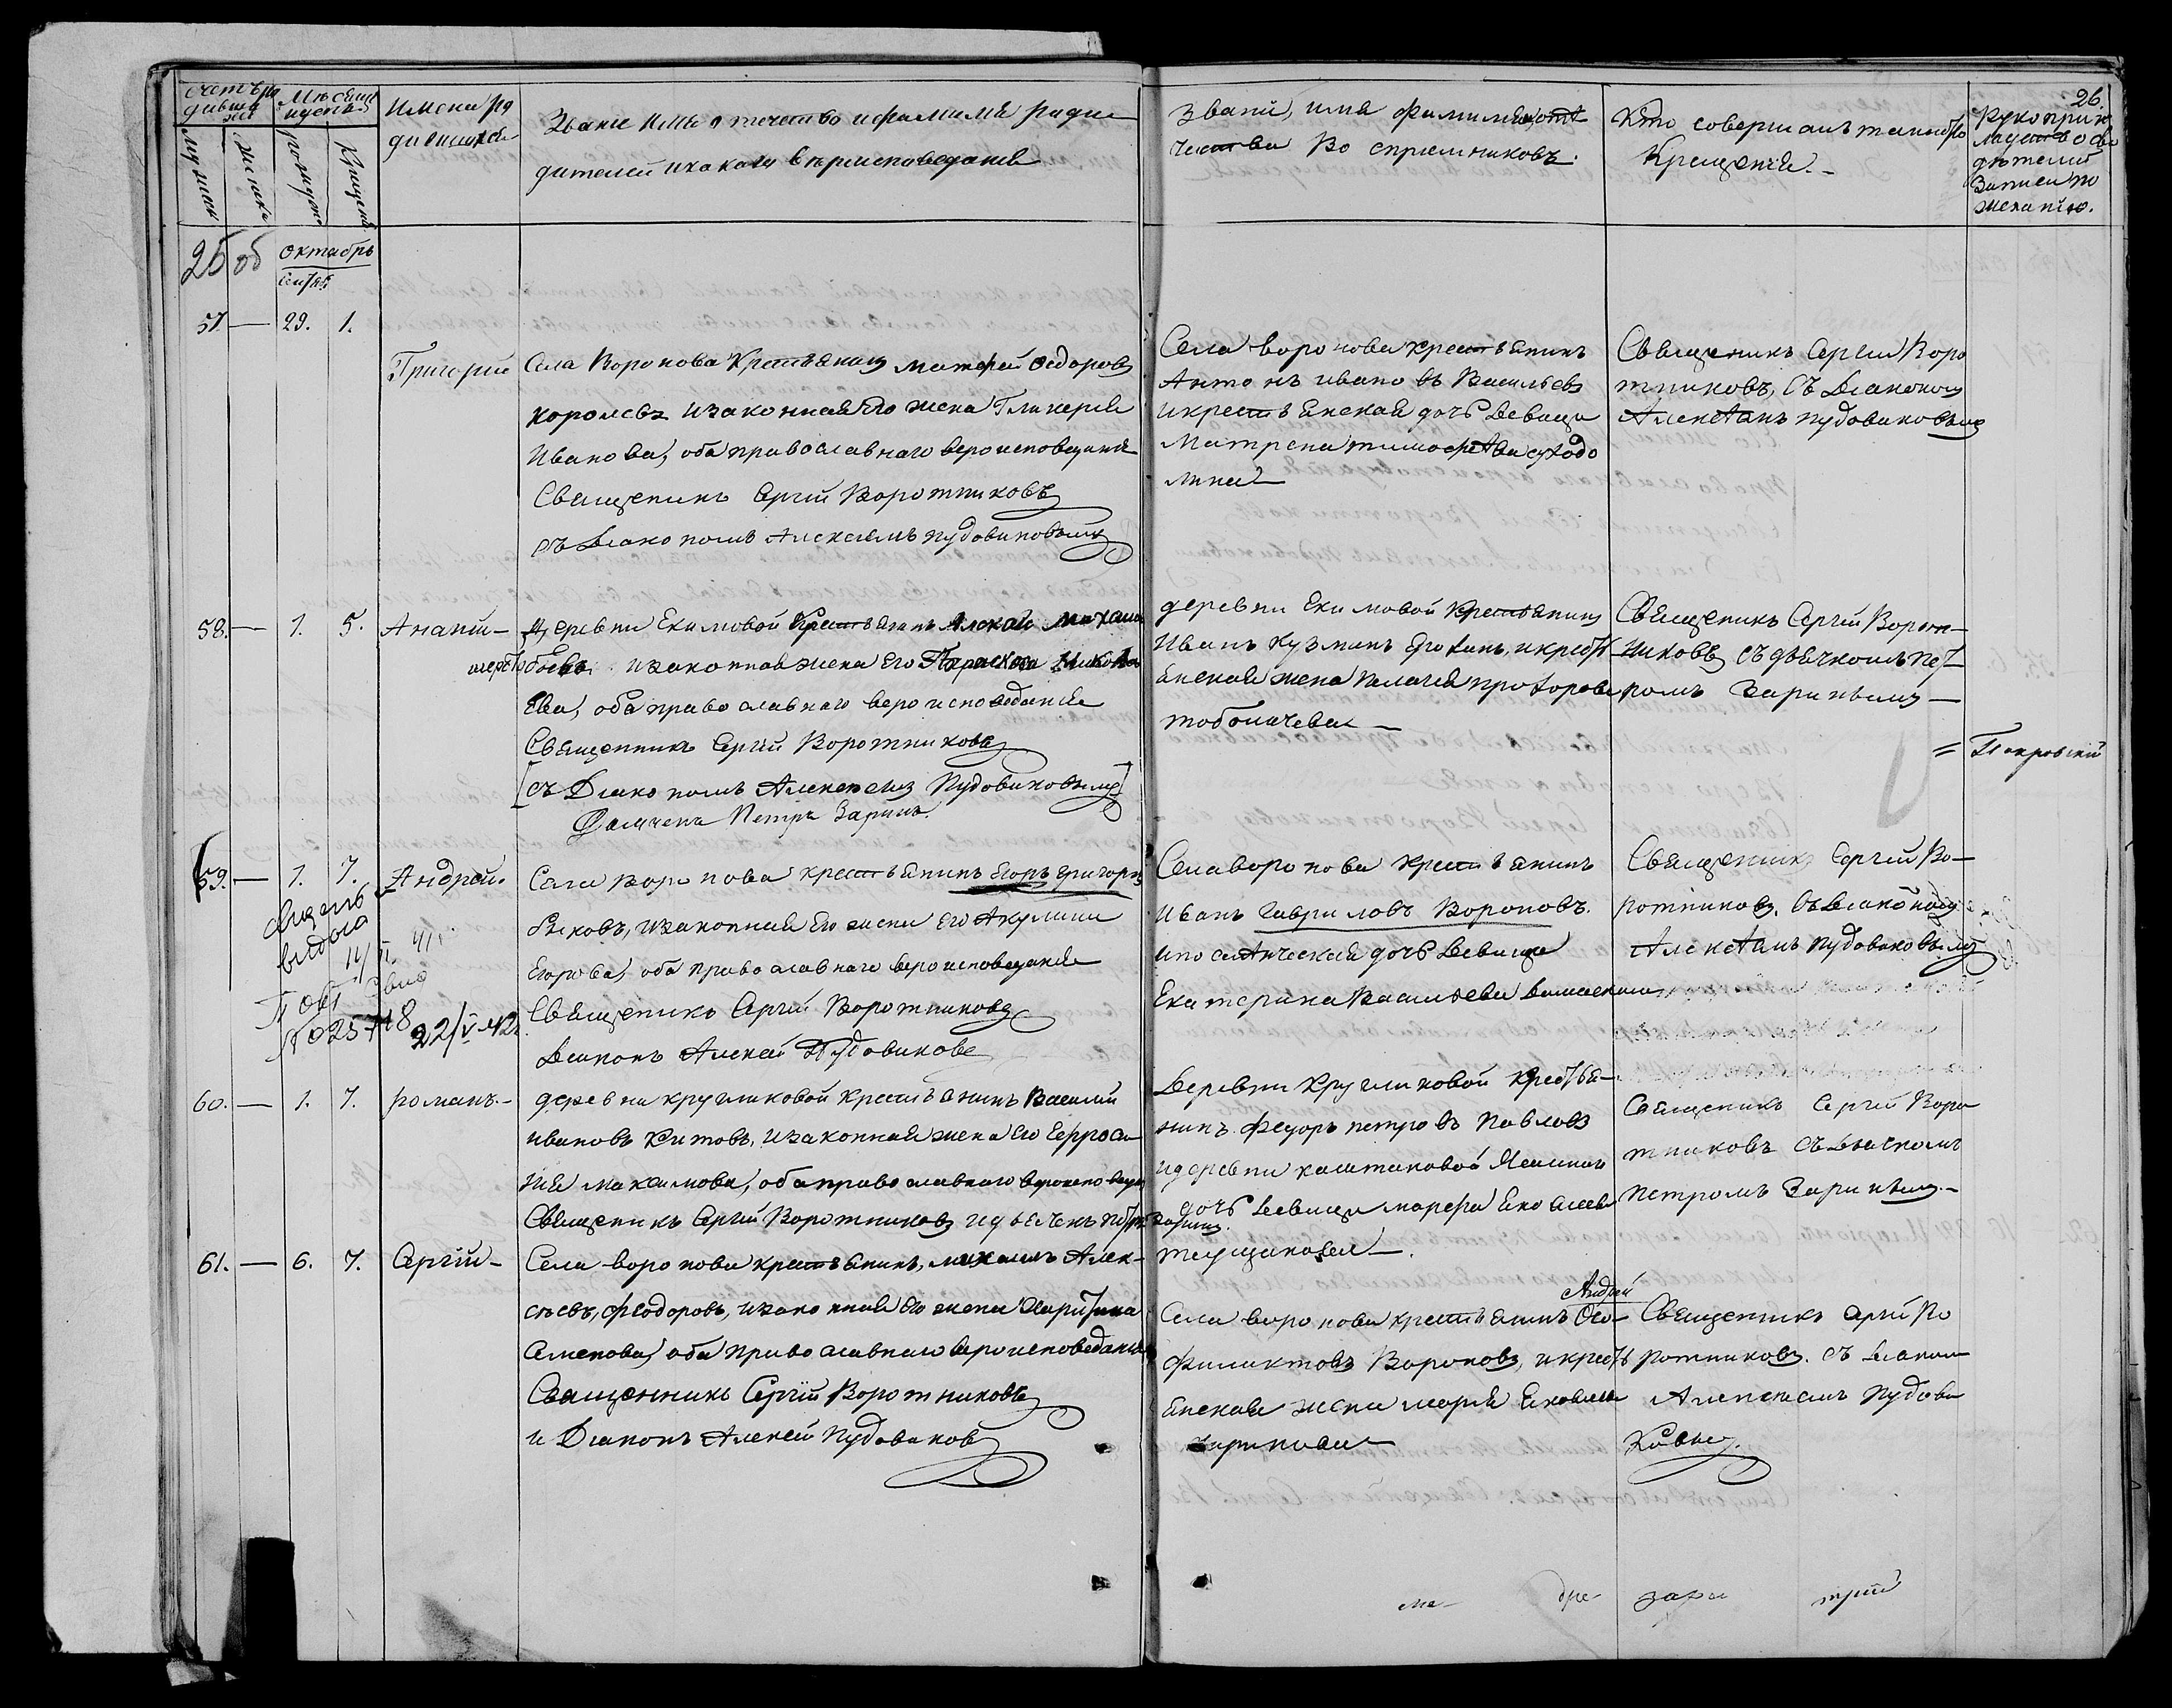 26.
счетъ ро
дивша
хся
Мѣсяцъ
и день
Имена ро
дившихся
Званіе имя отечество и фамилия роди
телей и какого вѣроисповеданія
Мужеск
Женска
рожденія
Крещенія
Званіе, имя фамилия и отѣ
чества Во спріемниковъ.
Кто совершалъ таинство
Крещенія.
Рукоприк
ладство сви
дѣтелей
Записи по
желанію.
25 об
Октябрь
57 — 29. 1.
Григорій
Села Воронова Крестьянинъ Матфей Федоровъ
Королевъ и законная его жена Гликерія
Иванова, оба православнаго вероисповеданія
Священикъ Сергій Воротниковъ
съ Діакономъ Алексіемъ Пудовиковымъ
Села Воронова крестьянинъ
Антонъ ивановъ Васильевъ
и крестьянская дочь Девица
Матрена тимофѣва суходо
лина
Священикъ Сергій Воро
тниковъ, съ Діакономъ
Алексѣмъ Пудовиковымъ
58. — 1. 5. Ананій —
деревни Екимовой Крестьянинъ Алексей Михаи
и законная жена его Параскева
Ева, оба православнаго вероисповеданія
Священникъ Сергій Воротниковъ
[съ Діакономъ Алексеемъ Пудовиковымъ]
Дьячекъ Петръ Заринъ.
деревни Екимовой Крестьянинъ
Иванъ Кузминъ Ерохинъ, и крест
янская жена Пелагея прохорова
тоболичева —
Священикъ Сергій Ворот—
никовъ съ дьячкомъ Пет
ромъ Заринымъ —
= Покровскій
59. — 1. 7. Андрей.
Села Воронова крестьянинъ Егоръ григорьв
Быковъ, и законная Его жена Его Акулина
Егорова, оба православнаго вероисповеданія
Священикъ Сергій Воротниковъ
Діаконъ Алексей Пудовиковъ
выдоса
14/VI 41г.
№ 025718 22/V 42.
Села Воронова крестьянинъ
Иванъ Гавриловъ Вороновъ.
и поселенческая дочь Девица
Екатерина Васильева
Священикъ Сергій Во—
ротниковъ. съ Діакономъ
Алексѣмъ Пудовиковымъ
60. — 1. 7. романъ. —
деревни кругликовой Крестьянинъ Василій
ивановъ Китовъ, и законная жена его Евфроси
нія Максимова, оба православнаго вероисповедан
Священикъ Сергій Воротниковъ и дьячекъ Петръ Заринъ.
Деревни Кругликовой Крестья—
нинъ Федоръ петровъ Павловъ
и деревни каштаковой Ясашная
дочь Девица марфа
Священикъ Сергій Воро
тниковъ съ Дьячкомъ
Петромъ Заринымъ. —
61. — 6. 7. Сергій —
Села Воронова крестьянинъ, михаилъ Алек—
сѣевъ, Феодоровъ, и законная его жена Харитина
Семенова, оба православнаго вероисповеданія
Священникъ Сергій Воротниковъ
и Діаконъ Алексей Пудовиковъ
Андрей
Села Воронова крестьянинъ Фео—
филактовъ Вороновъ, и крестъ
янская жена марія Яковлева
Священникъ Сергій Во
ротниковъ. съ Діаконом
Алексеемъ Пудови
ковым.
ме дре зара трій